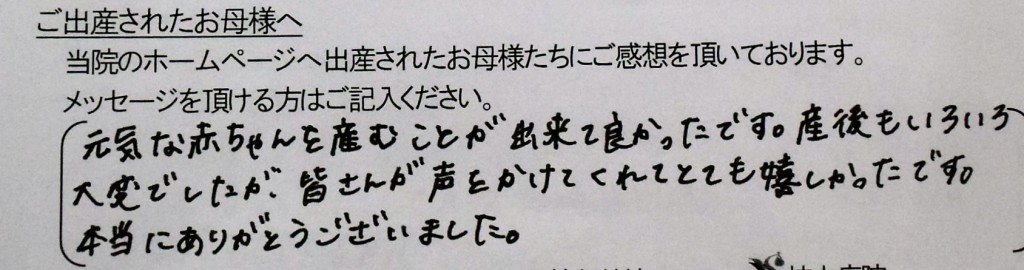 ご出産されたお母様へ
当院のホームページへ出産されたお母様たちにご感想を頂いております。
メッセージを頂ける方はご記入ください。
元気な赤ちゃんを産むことが出来て良かったです。産後もいろいろ
大変でしたが、皆さんが声をかけてくれてとても嬉しかったです。
本当にありがとうございました。